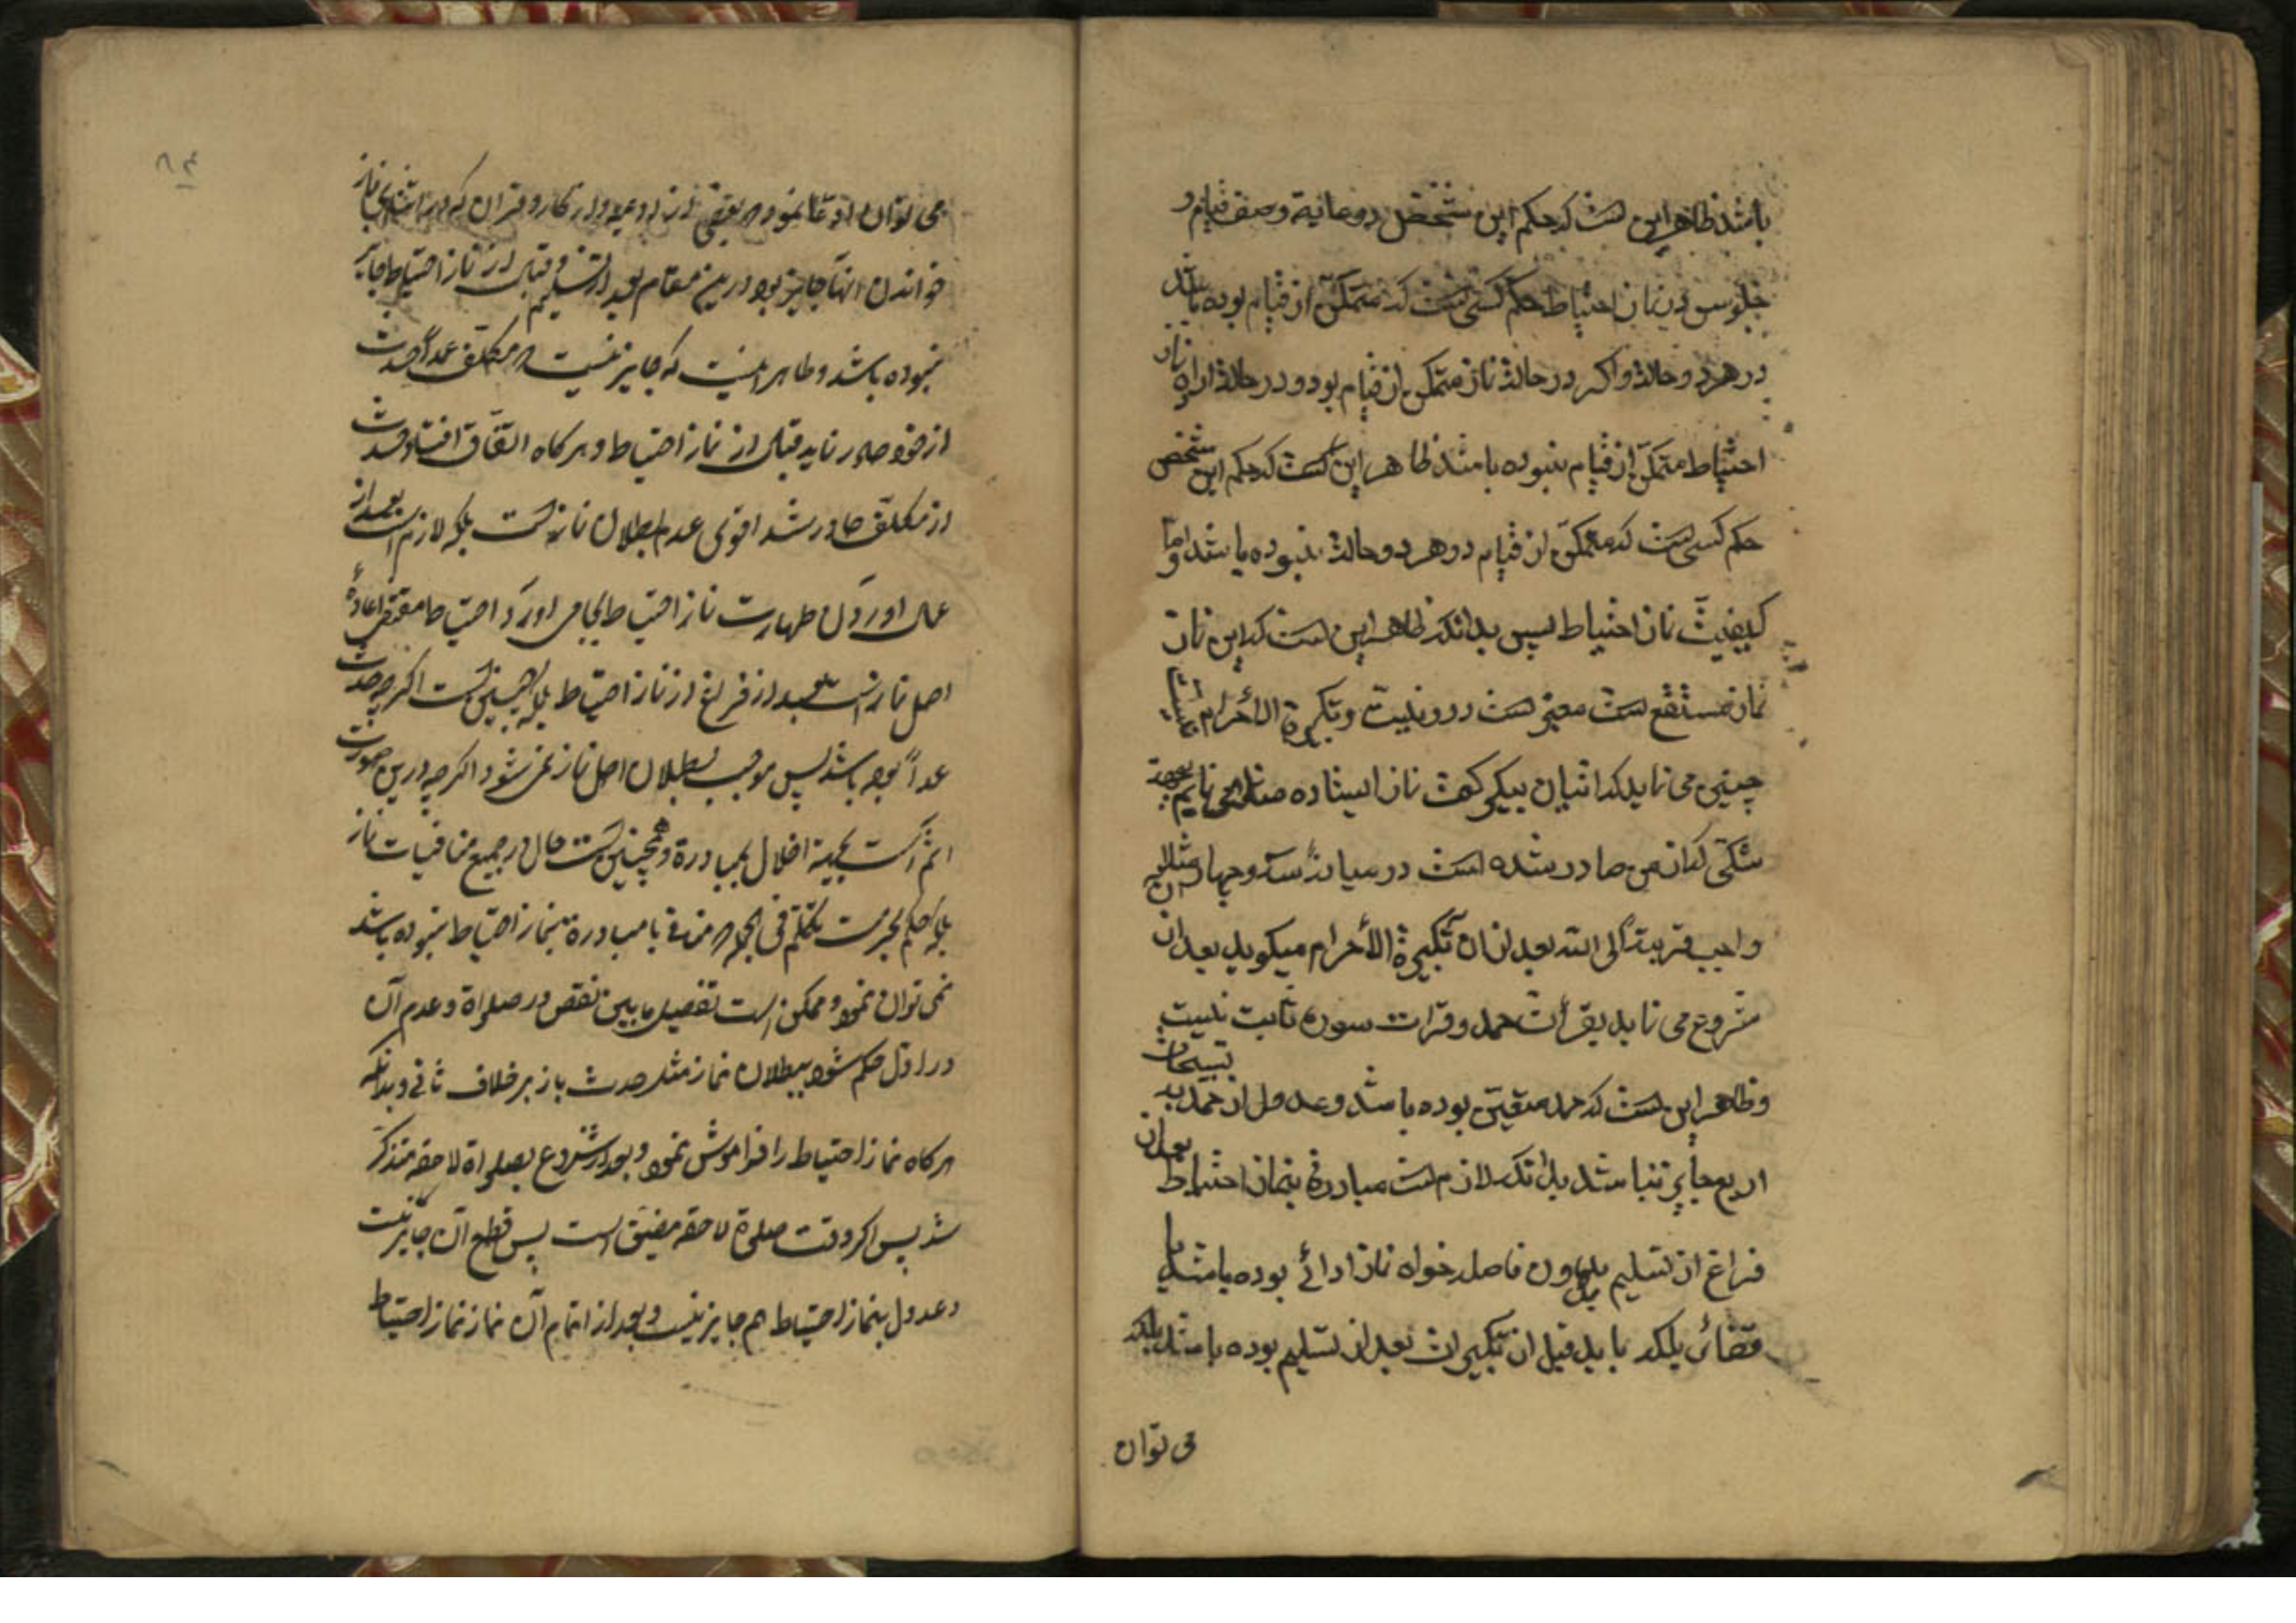 باشد ظاهر این است که حکم این شخص در مانیة وصف قیام و
جلوس در نماز احتیاط حکم کسی است که متمکن از قیام بوده باشد
در هر دو حالت و اگر در حالت نماز متمکن از قیام بود و در حالت اراده نماز
احتیاط متمکن از قیام نبوده باشد ظاهر این است که حکم این شخص
حکم کسی است که متمکن از قیام در هر دو حالت نبوده باشد و اما
کیفیت نماز احتیاط پس بدانکه ظاهر این است که این نماز
نماز مستقلی است معتبر است در او نیت و تکبیرة الاحرام
چنین می نماید که اتیان بیک رکعت نماز ایستاده مثلا می نمایم بجهة
شکی که از من صادر شده است در میانه سه و چهار مثلا
واجب قربة الی الله بعد از آن تکبیرة الأحرام میگوید بعد از ان
شروع می نماید بقرأت حمد و قرات سوره ثابت نیست
وظاهر این است که حمد متعین بوده باشد و عدول از حمد به تسبیحات
اربع جایز نباشد بدانکه لازم است مبادرة بنماز احتیاط بعد از
فراغ از تسلیم بدون فاصل خواه نماز ادائی بوده باشد یا
قضائی بلکه باید قبل از تکبیرات بعد از تسلیم بوده باشد بلکه
می توان
۸۴
می توان ادعا نمود هر بعضی از ادعیه و اذکار و قران که در اثنای نماز
خواندن انها جایز بود درین مقام بعد از تسلیم و قبل از نماز احتیاط جایز
نبوده باشد و ظاهر اینست که جایز نیست هر مکلف عمداً حدث
از خود صادر نماید قبل از نماز احتیاط و هر گاه اتفاق افتاد و حدث
از مکلف صادر شد اقوی عدم بطلان نماز است بلکه لازم است بعد از
عمل اوردن طهارت نماز احتیاط بجا می اورد و احتیاط مقتضی اعادهٔ
اصل نماز است بعد از فراغ از نماز احتیاط بلکه همچنین است اگر چه حدث
عمداً بوده باشد پس موجب بطلان اصل نماز نمی شود اگر چه درین صورت
اثم است بجهة اخلال بمبادرة و همچنین است حال در جمیع منافیات نماز
بلکه حکم بحرمت تکلم فی الجمله هر منافی با مبادرة بنماز احتیاط نبوده باشد
نمی توان نمود و ممکن است تفصیل ما بین نقص در صلواة و عدم آن
در اول حکم شود ببطلان نماز مثل حدث باز بر خلاف ثانی و بدانکه
هر گاه نماز احتیاط را فراموش نمود و بعد از شروع بصلواة لاحقه متذکر
شد پس اگر وقت صلوة لاحقه مضیق است پس قطع آن جایز نیست
و عدول بنماز احتیاط هم جایز نیست و بعد از اتمام آن نماز نماز احتیاط